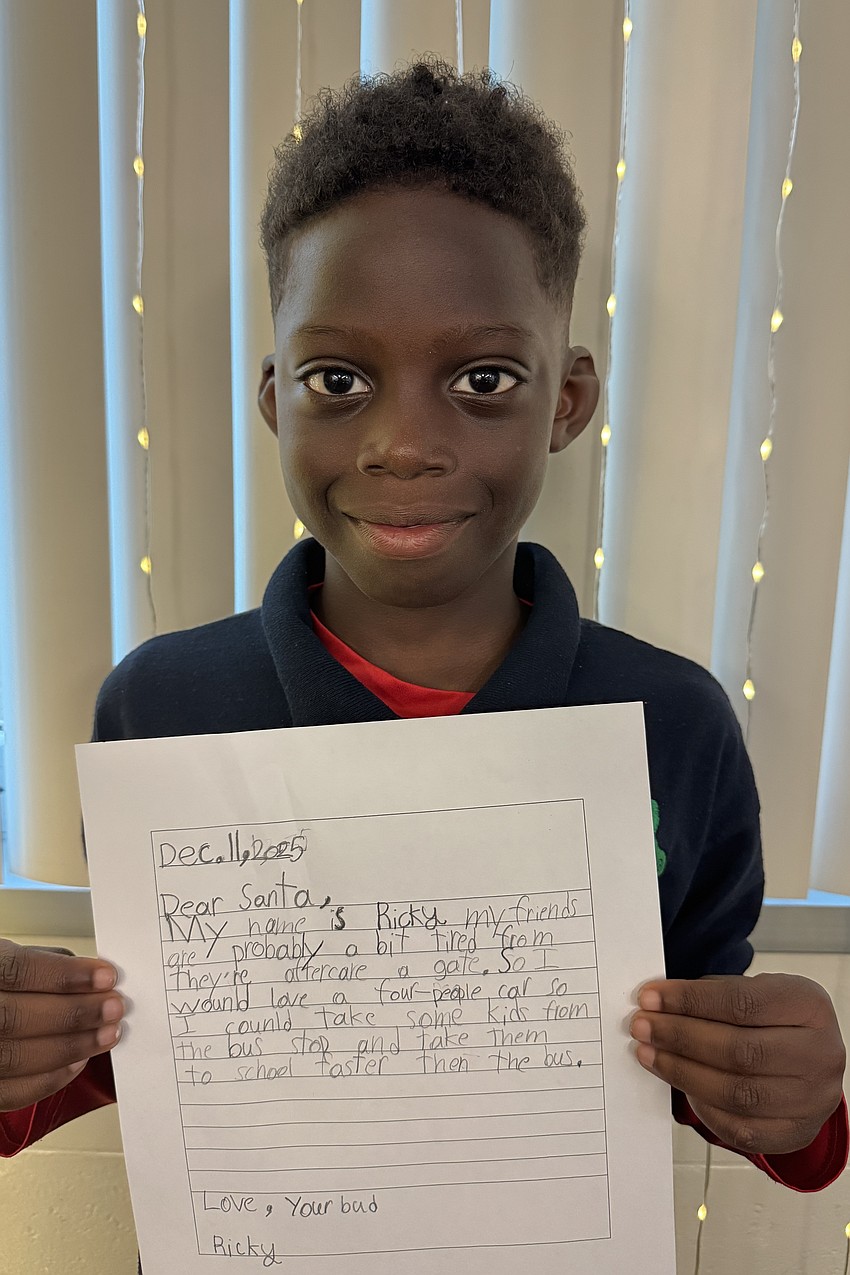 Dec. 11, 2025
Dear Santa,
My name is Ricky my friends
are probably a bit tired from
they're aftercare a gate. So I
wounld love a four-people car so
I counld take some kids from
the bus stop and take them
to school faster then the bus.
Love, Your bud
Ricky